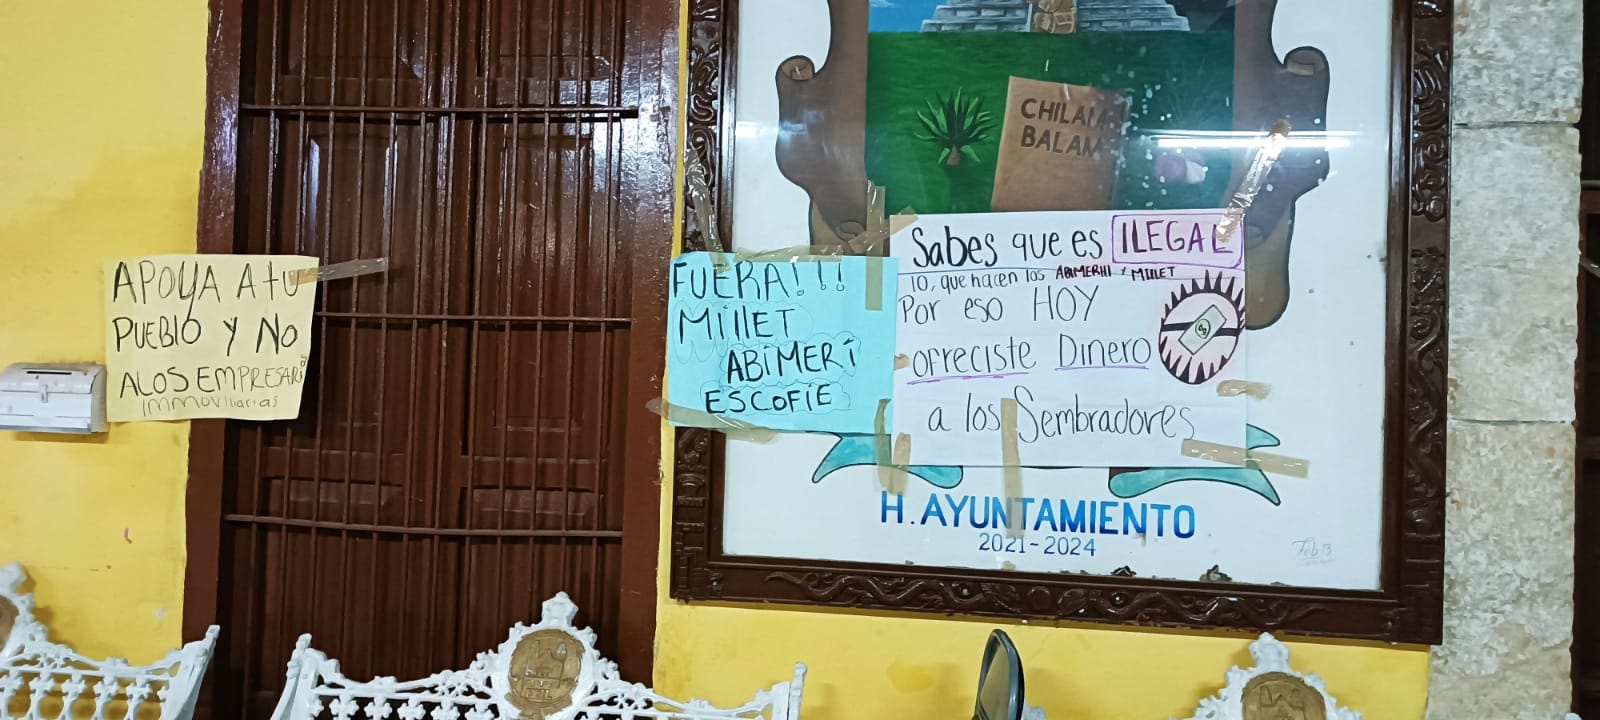 APOYA A tU
PUEBLO Y NO
A LOS EMPRESARIOS
IMMOVIliarias
FUERA!!!
MillET
ABIMERí
ESCOFIE
CHILAM
BALAM
Sabes que es ILEGAL
lo, que hacen los ABIMERHI Y MILLET
Por eso HOY
ofreciste Dinero
a los Sembradores
H. AYUNTAMIENTO
2021-2024